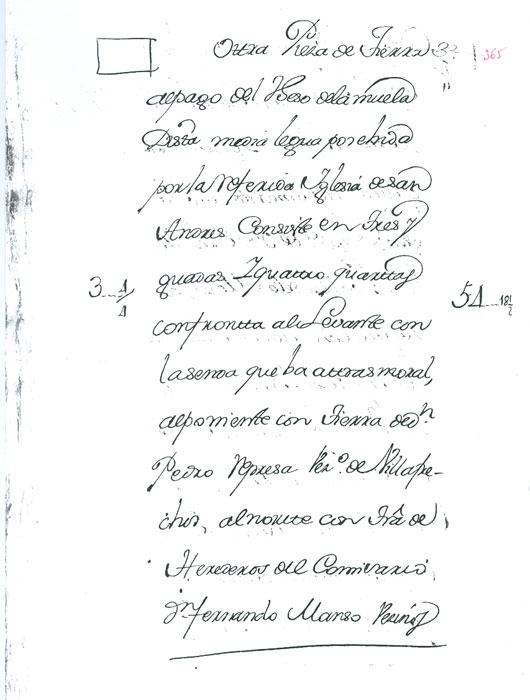 Ottra Pieza de Tierra 3ª 365
alpago del Hoso dela muela
Dista media legua posehida
por la referida Yglesia desan
Andres, Consiste en tres y
guadas Y quatro quartas
3 1/4
54 18 1/2
confrontta al Levante con
la senda que ba attrasmoral,
alponiente con tierra de dn.
Pedro Represa Vezº. de Villape-
chin, alnorte con trâ de
Herederos del Comisario
dn fernando Manso Vezinos